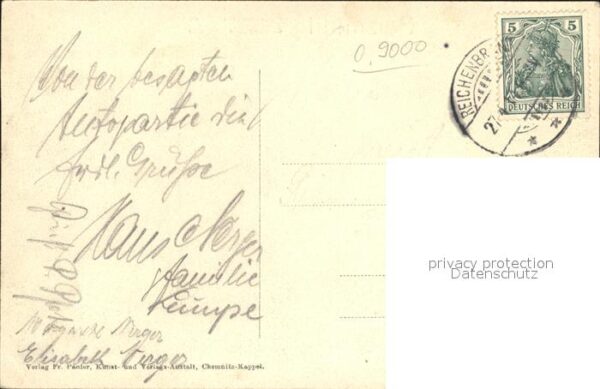 Von der besagten
Autopartie die
frdl. Grüße
Hans Berger
Familie
Kumpe
Berger
Elisabeth Berger
Verlag Fr. Kunst- und Verlags-Anstalt, Chemnitz-Kappel.
0,9000
5 5
DEUTSCHES REICH
REICHENBR
27
privacy protection
Datenschutz